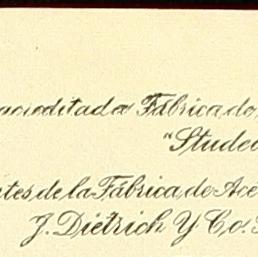 acreditada Fábrica de
"Stude
tes de la Fábrica de Ace
J. Dietrich Y Co.